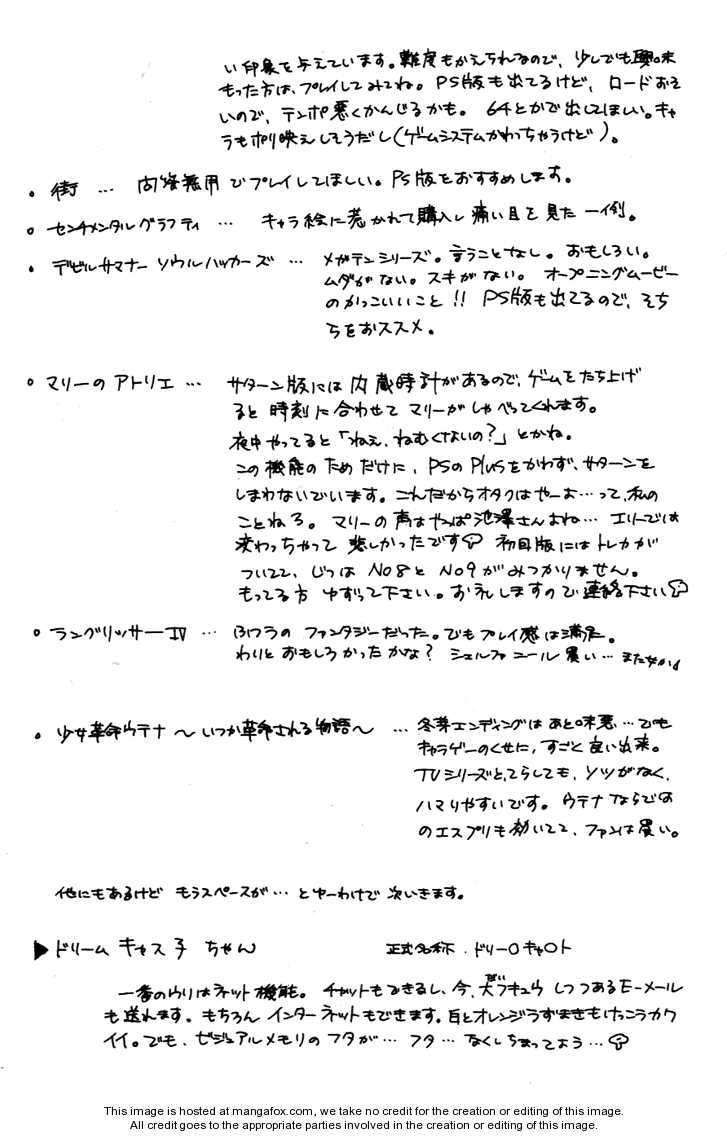 い印象を与えています。難度もかえられるので、少しでも興味
もった方は、プレイしてみてね。PS版も出てるけど、ロードおそ
いので、テンポ悪くかんじるかも。64とかで出してほしい。キャ
ラもポリ映えしそうだし(ゲームシステムかわっちゃうけど)。
・街 … 問答無用でプレイしてほしい。PS版をおすすめします。
・センチメンタルグラフティ … キャラ絵に惹かれて購入し痛い目を見た一例。
・デビルサマナー ソウルハッカーズ … メガテンシリーズ。言うことなし。おもしろい。
ムダがない。スキがない。オープニングムービー
のかっこいいこと!! PS版も出てるので、そち
らをおススメ。
・マリーのアトリエ … サターン版には内蔵時計があるので、ゲームをたち上げ
ると時刻に合わせてマリーがしゃべってくれます。
夜中やってると「ねえ、ねむくないの?」とかね。
この機能のためだけに、PSのPlusをかわず、サターンを
しまわないでいます。これだからオタクはやーよ…って、私の
ことねろ。マリーの声はやっぱ池澤さんよね… エリーでは
変わっちゃって悲しかったです 初回版にはトレカが
ついてて、じつはNo8とNo9がみつかりません。
もってる方ゆずって下さい。お礼しますので連絡下さい
・ラングリッサーⅣ … ファンタジーだった。でもプレイ感は満足。
わりとおもしろかったかな? シェルファニール買い…
・少女革命ウテナ〜いつか革命される物語〜 … 冬芽エンディングはあと味悪…でも
キャラゲーのくせに、すごく良い出来。
TVシリーズとてらしても、ソツがなく、
ハマりやすいです。ウテナならでは
のエスプリも効いてて、ファンは買い。
他にもあるけど もうスペースが… とゆーわけで 次いきます。
▶ドリームキャス子ちゃん 正式名称・ドリー○キャ○ト
一番のウリはネット機能。チャットもできるし、今、大ブキュウしつつあるE-メール
も送れます。もちろんインターネットもできます。白とオレンジうずまきもけっこうカワ
イイ。でも、ビジュアルメモリのフタが… フタ… なくしちまってよう…
This image is hosted at mangafox.com, we take no credit for the creation or editing of this image.
All credit goes to the appropriate parties involved in the creation or editing of this image.